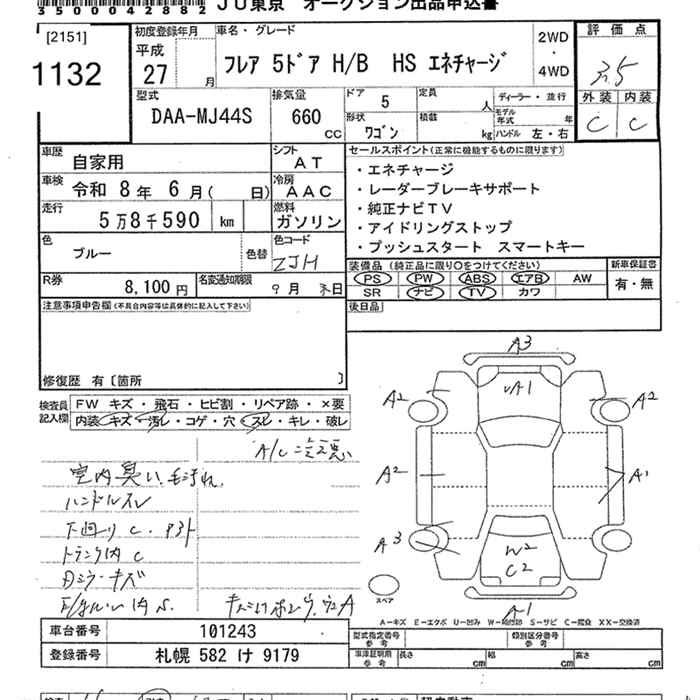 35000042882 JU東京 オークション出品申込書
[2151]
1132
初度登録年月
平成
27 月
車名・グレード
フレア 5ドア H/B HS エネチャージ
2WD
・
4WD
評価点
3.5
型式
DAA-MJ44S
排気量
660
CC
ドア 5
定員 人
ディーラー・並行
形状
ワゴン
積載 kg
モデル年式 年
ハンドル 左・右
外装 内装
C C
車歴 自家用
シフト AT
車検 令和 8年 6月( 日)
冷房 AAC
走行 5万8千590 km
燃料 ガソリン
色 ブルー
色替
色コード ZJH
R券 8,100円
名変通知期限 9月 末日
セールスポイント(正常に機能するものに限ります)
・エネチャージ
・レーダーブレーキサポート
・純正ナビTV
・アイドリングストップ
・プッシュスタート スマートキー
装備品 (純正品に限り○をつけてください)
PS PW ABS エアB AW
SR ナビ TV カワ
新車保証書
有・無
後日品
注意事項申告欄(不具合内容等は具体的に記入して下さい)
修復歴 有〔箇所 〕
検査員記入欄
FW キズ・飛石・ヒビ割・リペア跡・×要
内装 キズ・汚レ・コゲ・穴・スレ・キレ・破レ
室内臭い、毛汚れ
ハンドルスレ
下回り C
トランク内 C
A3
A1
A2
A2
A2
A1
A3
W2
C2
A1
スペア
A−キズ E−エクボ U−凹み S−サビ C−腐食 XX−交換済
車台番号 101243
登録番号 札幌 582 け 9179
型式指定番号参考
類別区分番号参考
車庫証明用参考
長さ cm
幅 cm
高さ cm